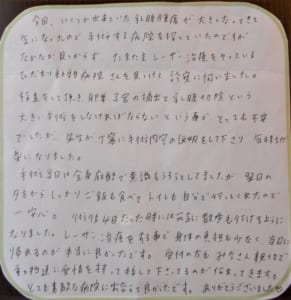 今回、いくつか出来ていた乳腺腫瘍が大きくなってきて
気になったので手術する病院を探していたのですが
なかなか見つからず たまたまレーザー治療をやっている
ひだまり動物病院さんを見つけて診察に伺いました。
検査をして頂き卵巣、子宮の摘出と乳腺切除という
大きい手術をしなければならないという事で とっても不安
でしたが、先生が丁寧に手術内容の説明をして下さり 気持ちが
楽になりました。
手術当日は全身麻酔で意識もうろうとしてましたが 翌日の
夕方からしっかりご飯も食べ トイレも自分で行ってくれたので
一安心。 術後4日たった時には元気に散歩も行けるように
なりました。 レーザー治療をする事で身体の負担も少なく、当日に
帰れるのが本当に良かったです。 受付の方も みなさん親切で
動物達に愛情を持って接して下さってるのが伝わってきます。
とても素敵な病院に出会えて良かったです。 ありがとうございました